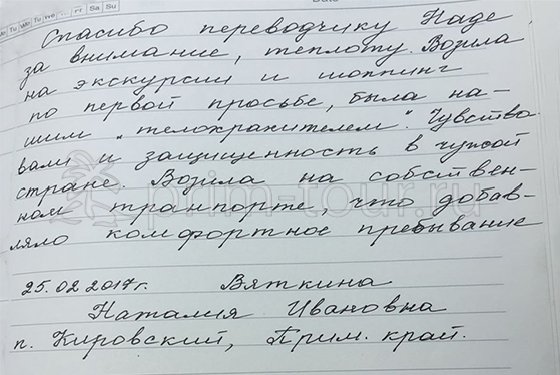 Mo Tu We rr Sa Su
Спасибо переводчику Наде
за внимание, теплоту. Возила
на экскурсии и шоппинг
по первой просьбе, была на-
шим „телохранителем". Чувство-
вали и защищенность в чужой
стране. Возила на собствен-
ном транпорте, что добав-
ляло комфортное пребывание
prim-tour.ru
25.02.2017г. Вяткина
Наталия Ивановна
п. Кировский, Прим. край.